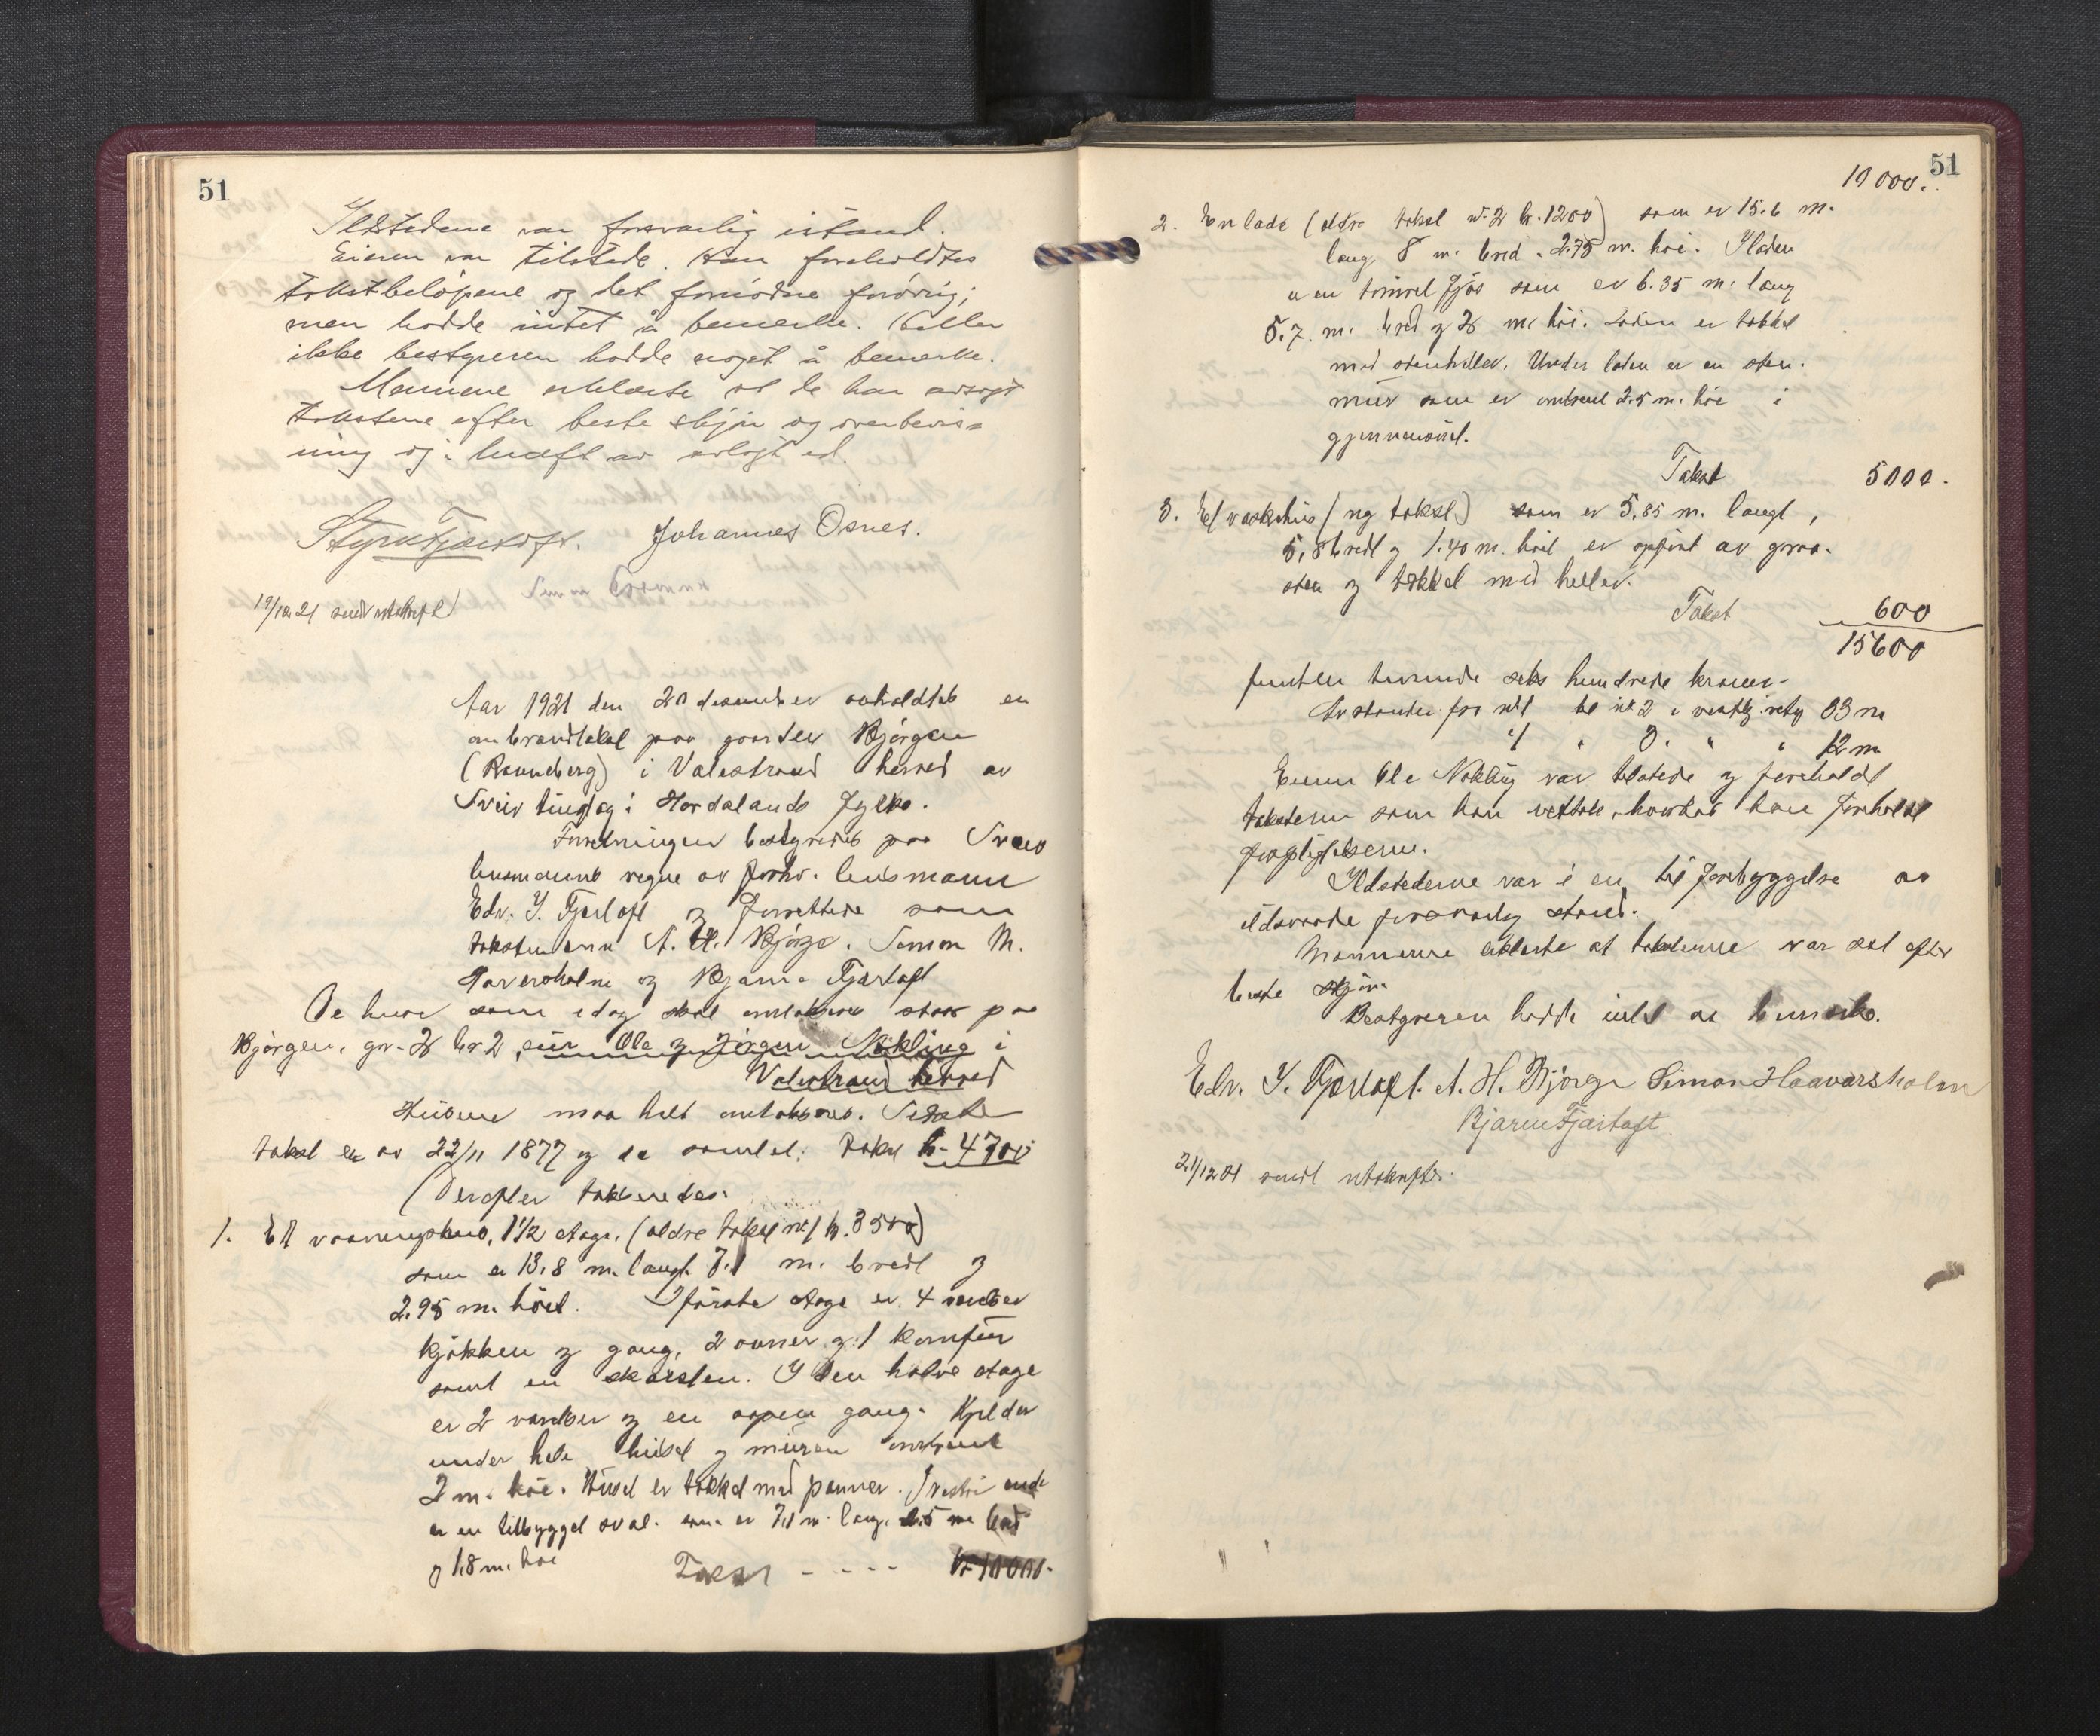 51
Ildstedene var forsvarlig istand.
Eieren var tilstede. Han foreholdtes
takstbeløpene og det fornødne forøvrig;
men hadde intet å bemerke. Heller
ikke bestyreren hadde noget å bemerke.
Mennene erklærte at de har avsagt
takstene efter beste skjøn og overbevis=
ning og i kraft av avlagt ed.
Styrk Fjærtoft. Johannes Osnes.
19/12.21 sendt utskrift
Aar 1921 den 20 desember avholdtes en
ombrandtakst paa gaarden Bjørgen
(Raunberg) i Valestrand herred av
Sveio tinglag i Hordalands Fylke.
Forretningen bestyredes paa Sveio
lensmanns vegne av forhv. lensmann
Edv. I. Fjærtoft og forrettede som
takstmenn A. H. Bjørge. Simon M.
Haaversholm og Bjarne Fjærtoft
De huse som idag skal omtakseres staar paa
Bjørgen, gr. 28 br 2, eier Ole og Jørgen Nøkling i
Valestrand herred
Husene maa helt omtakseres. Sidste
takst er av 22/11 1877 og de samlet: takst kr. 4700
Derefter takseredes.
1. Et vaaningshus, 1½ etage. (ældre takst nr 1 kr. 3500)
som er 13.8 m. langt 7.1 m. bredt og
2.95 m. høit. I første etage er 4 værelser
kjøkken og gang, 2 ovner og 1 komfur
samt en skorsten. I den halve etage
er 2 værelser og en aapen gang. Kjelder
under hele huset og muren omtrent
2 m. høi. Huset er tækket med panner. I vestre ende
er en tilbygget sval. som er 7,1 m. lang, 1.5 m bred
og 1.8 m. høi Takst - - - - kr 10000.
51
10 000.
2. En lade (ældre takst nr. 2 kr. 1200) som er 15.6 m.
lang, 8 m. bred. 2.75 m. høi. I laden
er en tømret fjøs som er 6.35 m. lang
5.7. m. bred og 2 m. høi. Laden er tækket
med stenheller. Under laden er en sten-
mur som er omtrent 2.5 m. høi i
gjennemsnit.
Takst 5000.
3. Et vaskehus (ny takst) som er 5,85 m. langt,
5,8 bredt og 1.40 m. høit er opført av graa-
sten og tækket med heller.
Takst 600
15600
femten tusende seks hundrede kroner.
Avstanden fra nr 1 til nr 2 i vestlig retn 33 m
" 1 " 3. " " 12 m
Eieren Ole Nøkling var tilstede og foreholdt
taksterne som han vedtok, hvorhos han foreholdt
forpligtelserne.
Ildstederne var i en til forebyggelse av
ildsvaade forsvarlig stand.
Mannerne erklærte at taksterne var sat efter
beste skjøn.
Bestyreren hadde intet at bemerke.
Edv. I. Fjærtoft. A. H. Bjørge Simon Haavarsholm
Bjarne Fjærtoft.
21/12 21 sendt utskrifter.